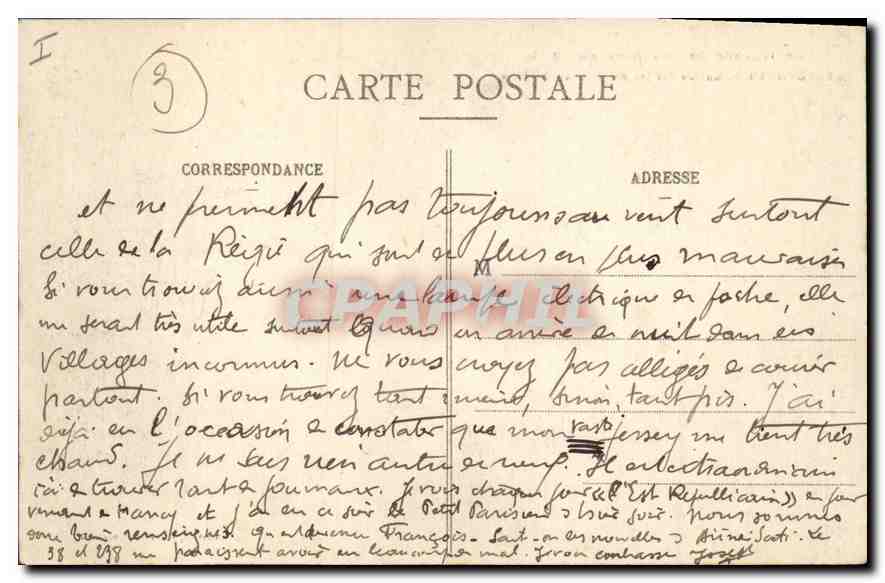 I
3
CARTE POSTALE
CORRESPONDANCE
ADRESSE
et ne prennent pas toujours au vent surtout
celle de la Régie qui sont de plus en plus mauvaises
M
Si vous trouvez aussi une lampe électrique de poche, elle
me serait très utile surtout quand on arrive de nuit dans des
villages inconnus. Ne vous croyez pas obligés de courir
partout. Si vous trouvez tant mieux, sinon, tant pis. J'ai
déjà eu l'occasion de constater que mon vaste Jersey me tient très
chaud. Je ne sais rien autre de neuf. Il est extraordinaire
ici de trouver tant de journaux. Je vois chaque jour « l'Est Républicain » du jour
venant de Nancy et j'ai eu ce soir le Petit Parisien d'hier soir. Nous sommes
donc bien renseignés. Qu'est devenu François. Sait-on des nouvelles d'
Le
38 et 238 me paraissent avoir eu beaucoup de mal. Je vous embrasse Joseph
CPAPHIL